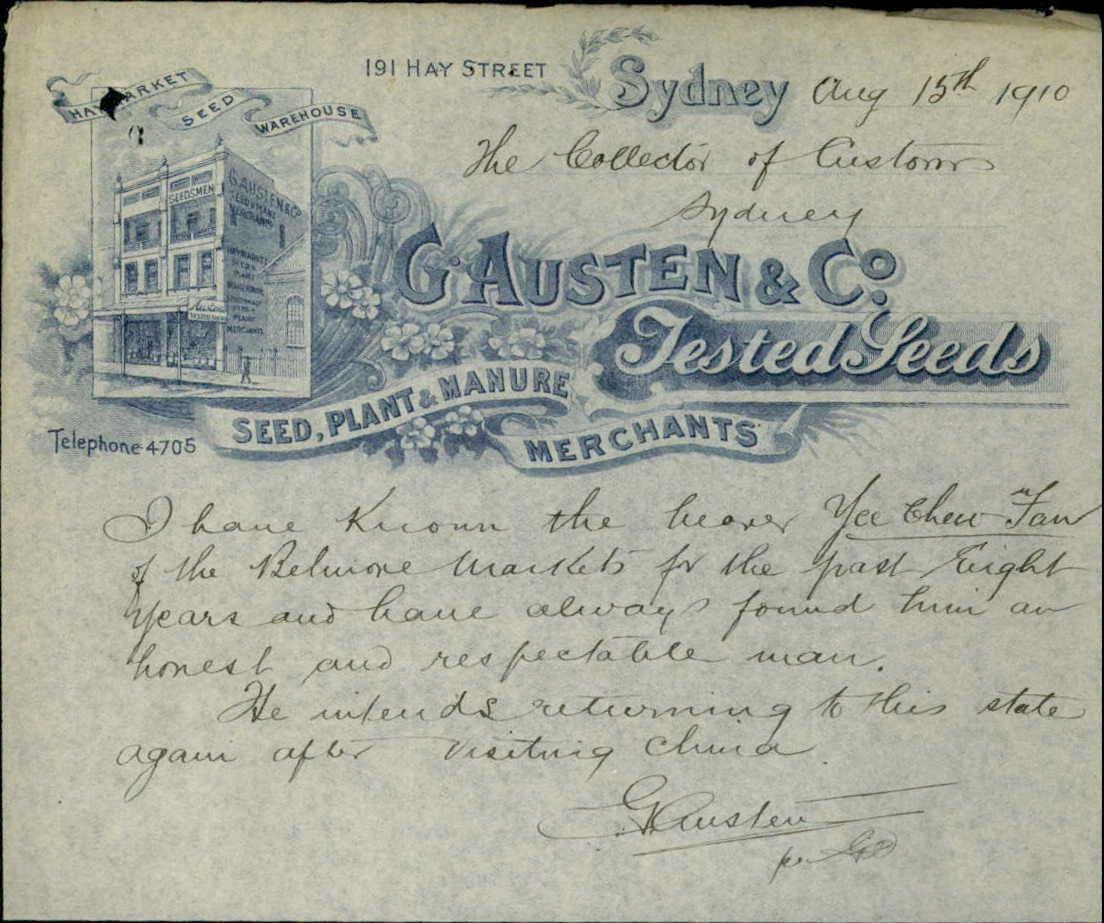 191 HAY STREET
Sydney Aug 15th 1910
HAYMARKET SEED WAREHOUSE
The Collector of Customs
Sydney
SEEDSMEN
G. AUSTEN & CO
G. AUSTEN & Co.
Tested Seeds
SEED, PLANT & MANURE
MERCHANTS
Telephone 4705
I have known the bearer Yee Chew Fan
of the Belmore Markets for the past Eight
Years and have always found him an
honest and respectable man.
He intends returning to this state
again after visiting China
G Austen